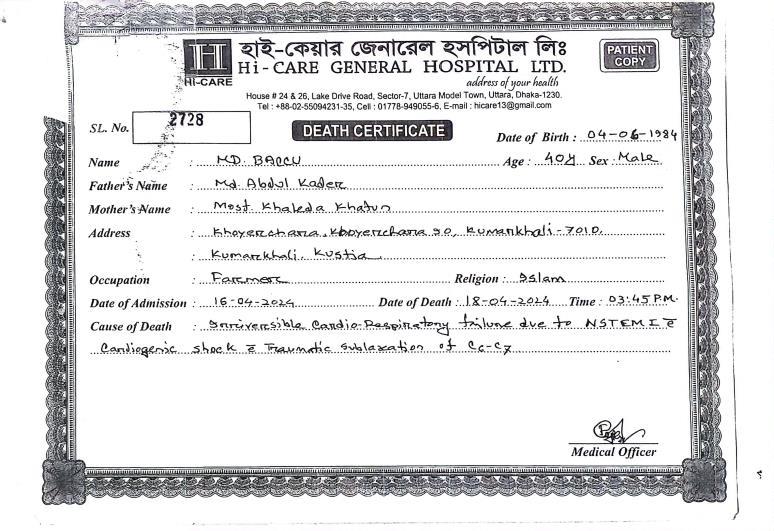 হাই-কেয়ার জেনারেল হসপিটাল লিঃ
Hi-CARE GENERAL HOSPITAL LTD.
address of your health
PATIENT COPY
HI-CARE
House # 24 & 26, Lake Drive Road, Sector-7, Uttara Model Town, Uttara, Dhaka-1230.
Tel : +88-02-55094231-35, Cell : 01778-949055-6, E-mail : hicare13@gmail.com
SL. No. 2728
DEATH CERTIFICATE
Date of Birth : 04-06-1984
Name : MD. BACCU Age : 40y Sex : Male
Father's Name : Md. Abdul Kader
Mother's Name : Most. Khaleda Khatun
Address : Khoyerchara, Khoyerchara 50, Kumarkhali-7010.
Kumarkhali, Kustia
Occupation : Farmer Religion : Islam
Date of Admission : 16-04-2024 Date of Death : 18-04-2024 Time : 03:45 P.M.
Cause of Death : Irriversible Cardio-Respiratory failure due to NSTEMI c̄
Cardiogenic shock c̄ Traumatic sublaxation of C6-C7
Medical Officer